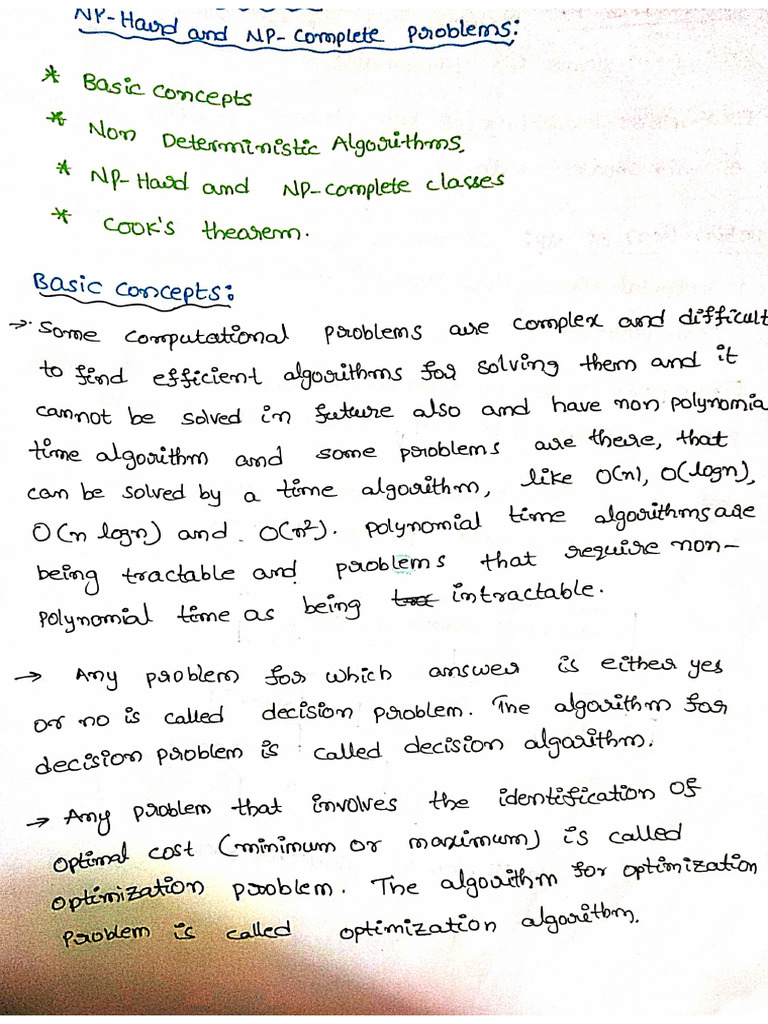 NP-Hard and NP-Complete Problems:
* Basic Concepts
* Non Deterministic Algorithms,
* NP-Hard and NP-complete classes
* Cook's thearem.
Basic Concepts:
→ Some computational problems are complex and difficult
to find efficient algorithms for solving them and it
cannot be solved in future also and have non polynomia
time algorithm and some problems are there, that
can be solved by a time algorithm, like O(n), O(logn),
O(n logn) and O(n²). Polynomial time algorithms are
being tractable and problems that require non-
polynomial time as being intractable.
→ Any problem for which answer is either yes
or no is called decision problem. The algorithm for
decision problem is called decision algorithm.
→ Any problem that involves the identification of
optimal cost (minimum or maximum) is called
optimization problem. The algorithm for optimization
problem is called optimization algorithm.